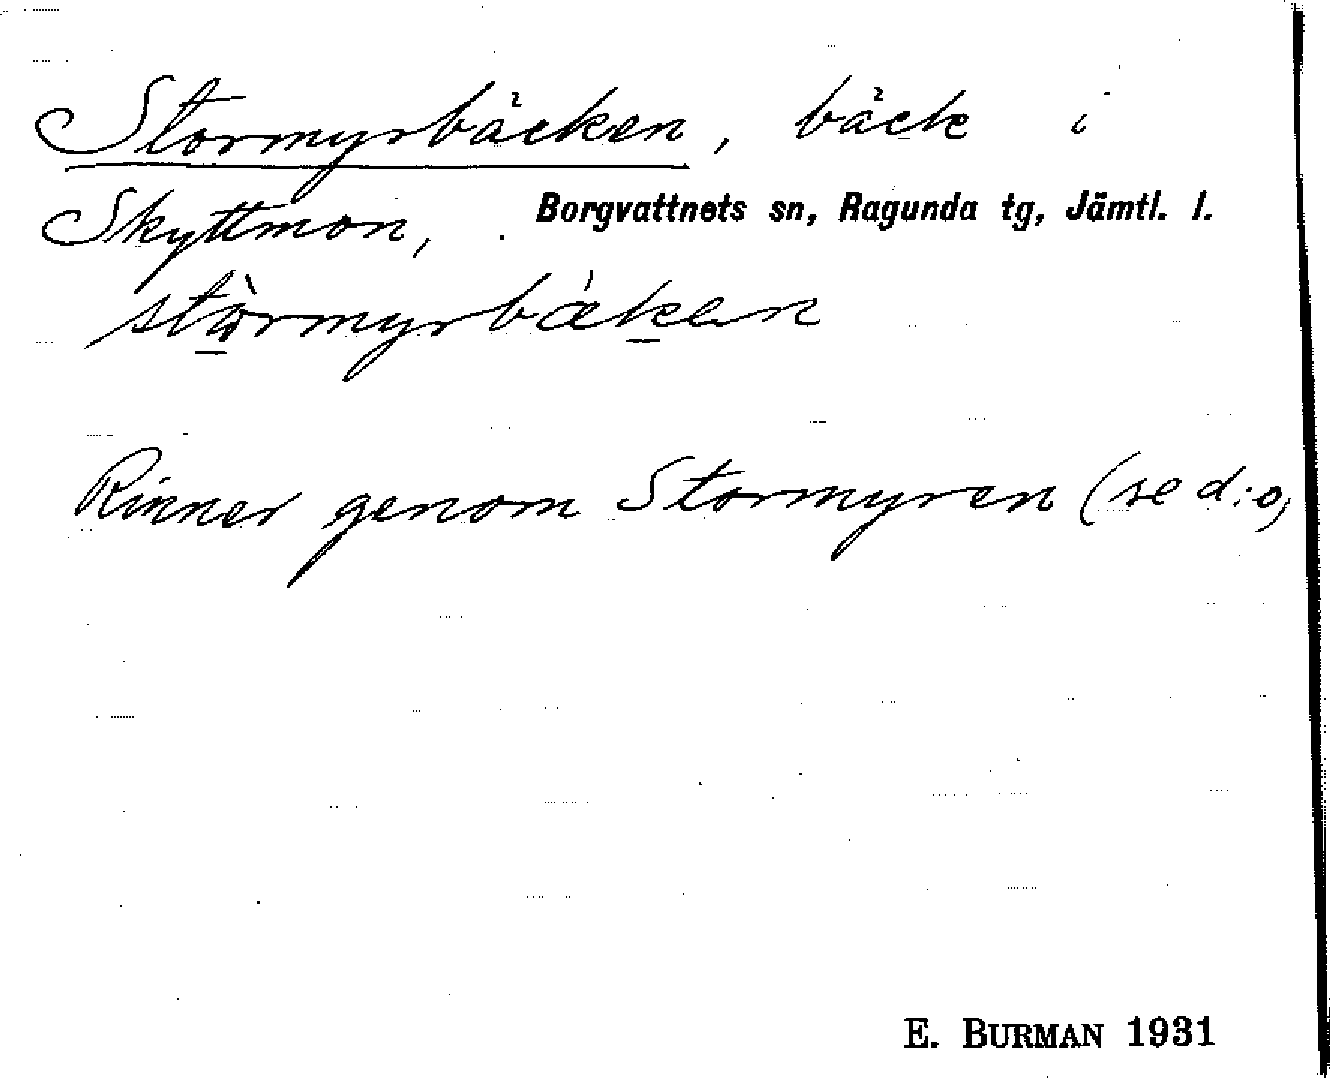 Stormyrbäcken, bäck i
Skyttmon, Borgvattnets sn, Ragunda tg, Jämtl. l.
stòrmyrbǽken
Rinner genom Stormyren (se d:o)
E. BURMAN 1931